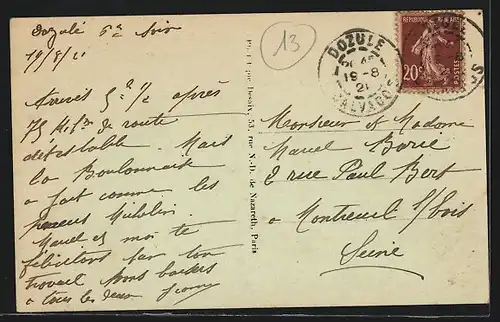 Dozulé 6h Soir
19/8/21
Arrivés 5h 1/2 après
75 Km de route
détestable. Mais
la Boulonnais
a fait comme les
pneus Michelin.
Marcel et moi te
félicitons pour ton
travail Bons baisers
à tous les deux
13
DOZULÉ
19-8
21
CALVADOS
20c
POSTES
Ph. L'H rue Desaix, 53, rue N.-D. de Nazareth, Paris
Monsieur et Madame
Marcel
2 rue Paul Bert
à Montreuil s/bois
Seine